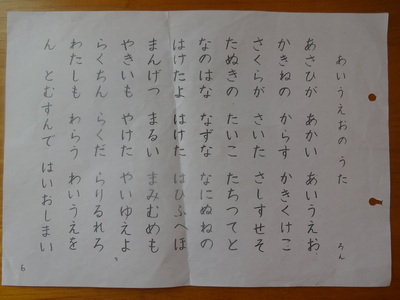 あいうえおの うた
ろん
あさひが あかい あいうえお
かきねの からす かきくけこ
さくらが さいた さしすせそ
たぬきの たいこ たちつてと
なのはな なずな なにぬねの
はけたよ はけた はひふへほ
まんげつ まるい まみむめも
やきいも やけた やいゆえよ
らくちん らくだ らりるれろ
わたしも わらう わいうえを
ん とむすんで はいおしまい
6